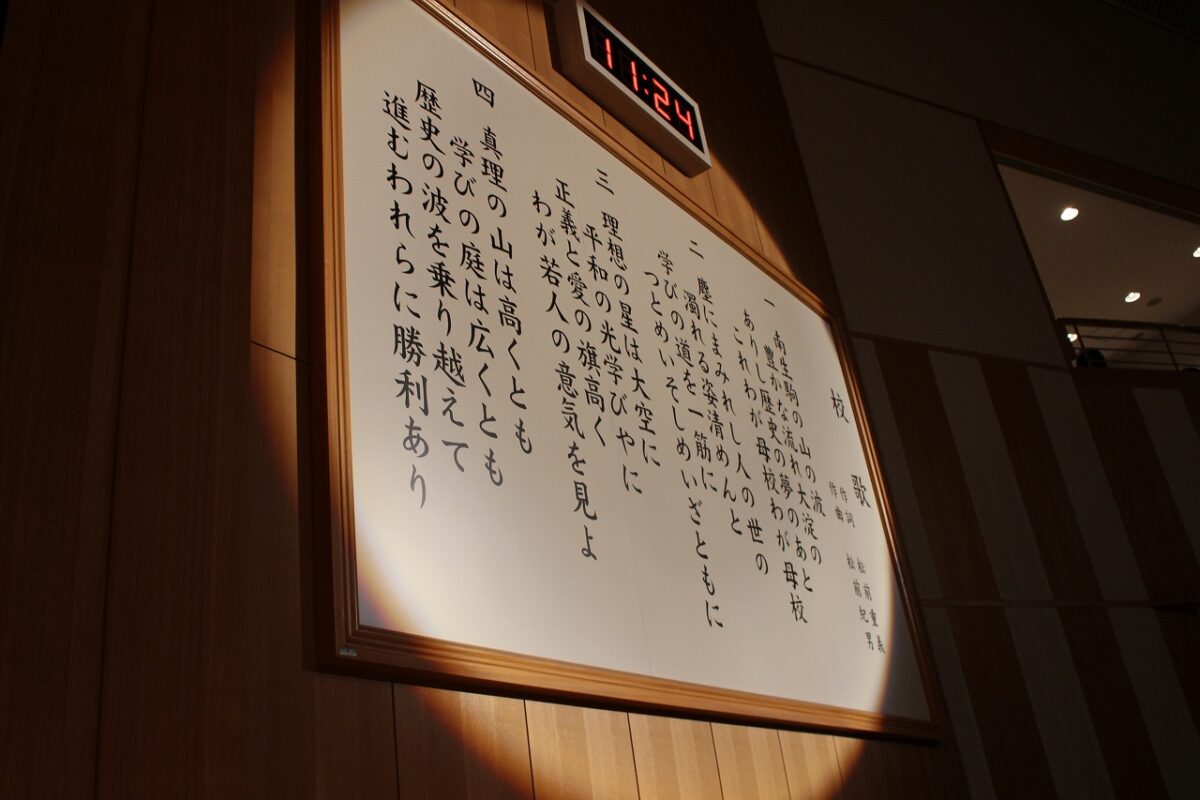 校歌
作詞 松前重義
作曲 松前紀男
一 南生駒の山の波
豊かな流れ大淀の
ありし歴史の夢のあと
これわが母校わが母校
二 塵にまみれし人の世の
濁れる姿清めんと
学びの道を一筋に
つとめいそしめいざともに
三 理想の星は大空に
平和の光学びやに
正義と愛の旗高く
わが若人の意気を見よ
四 真理の山は高くとも
学びの庭は広くとも
歴史の波を乗り越えて
進むわれらに勝利あり
11:24